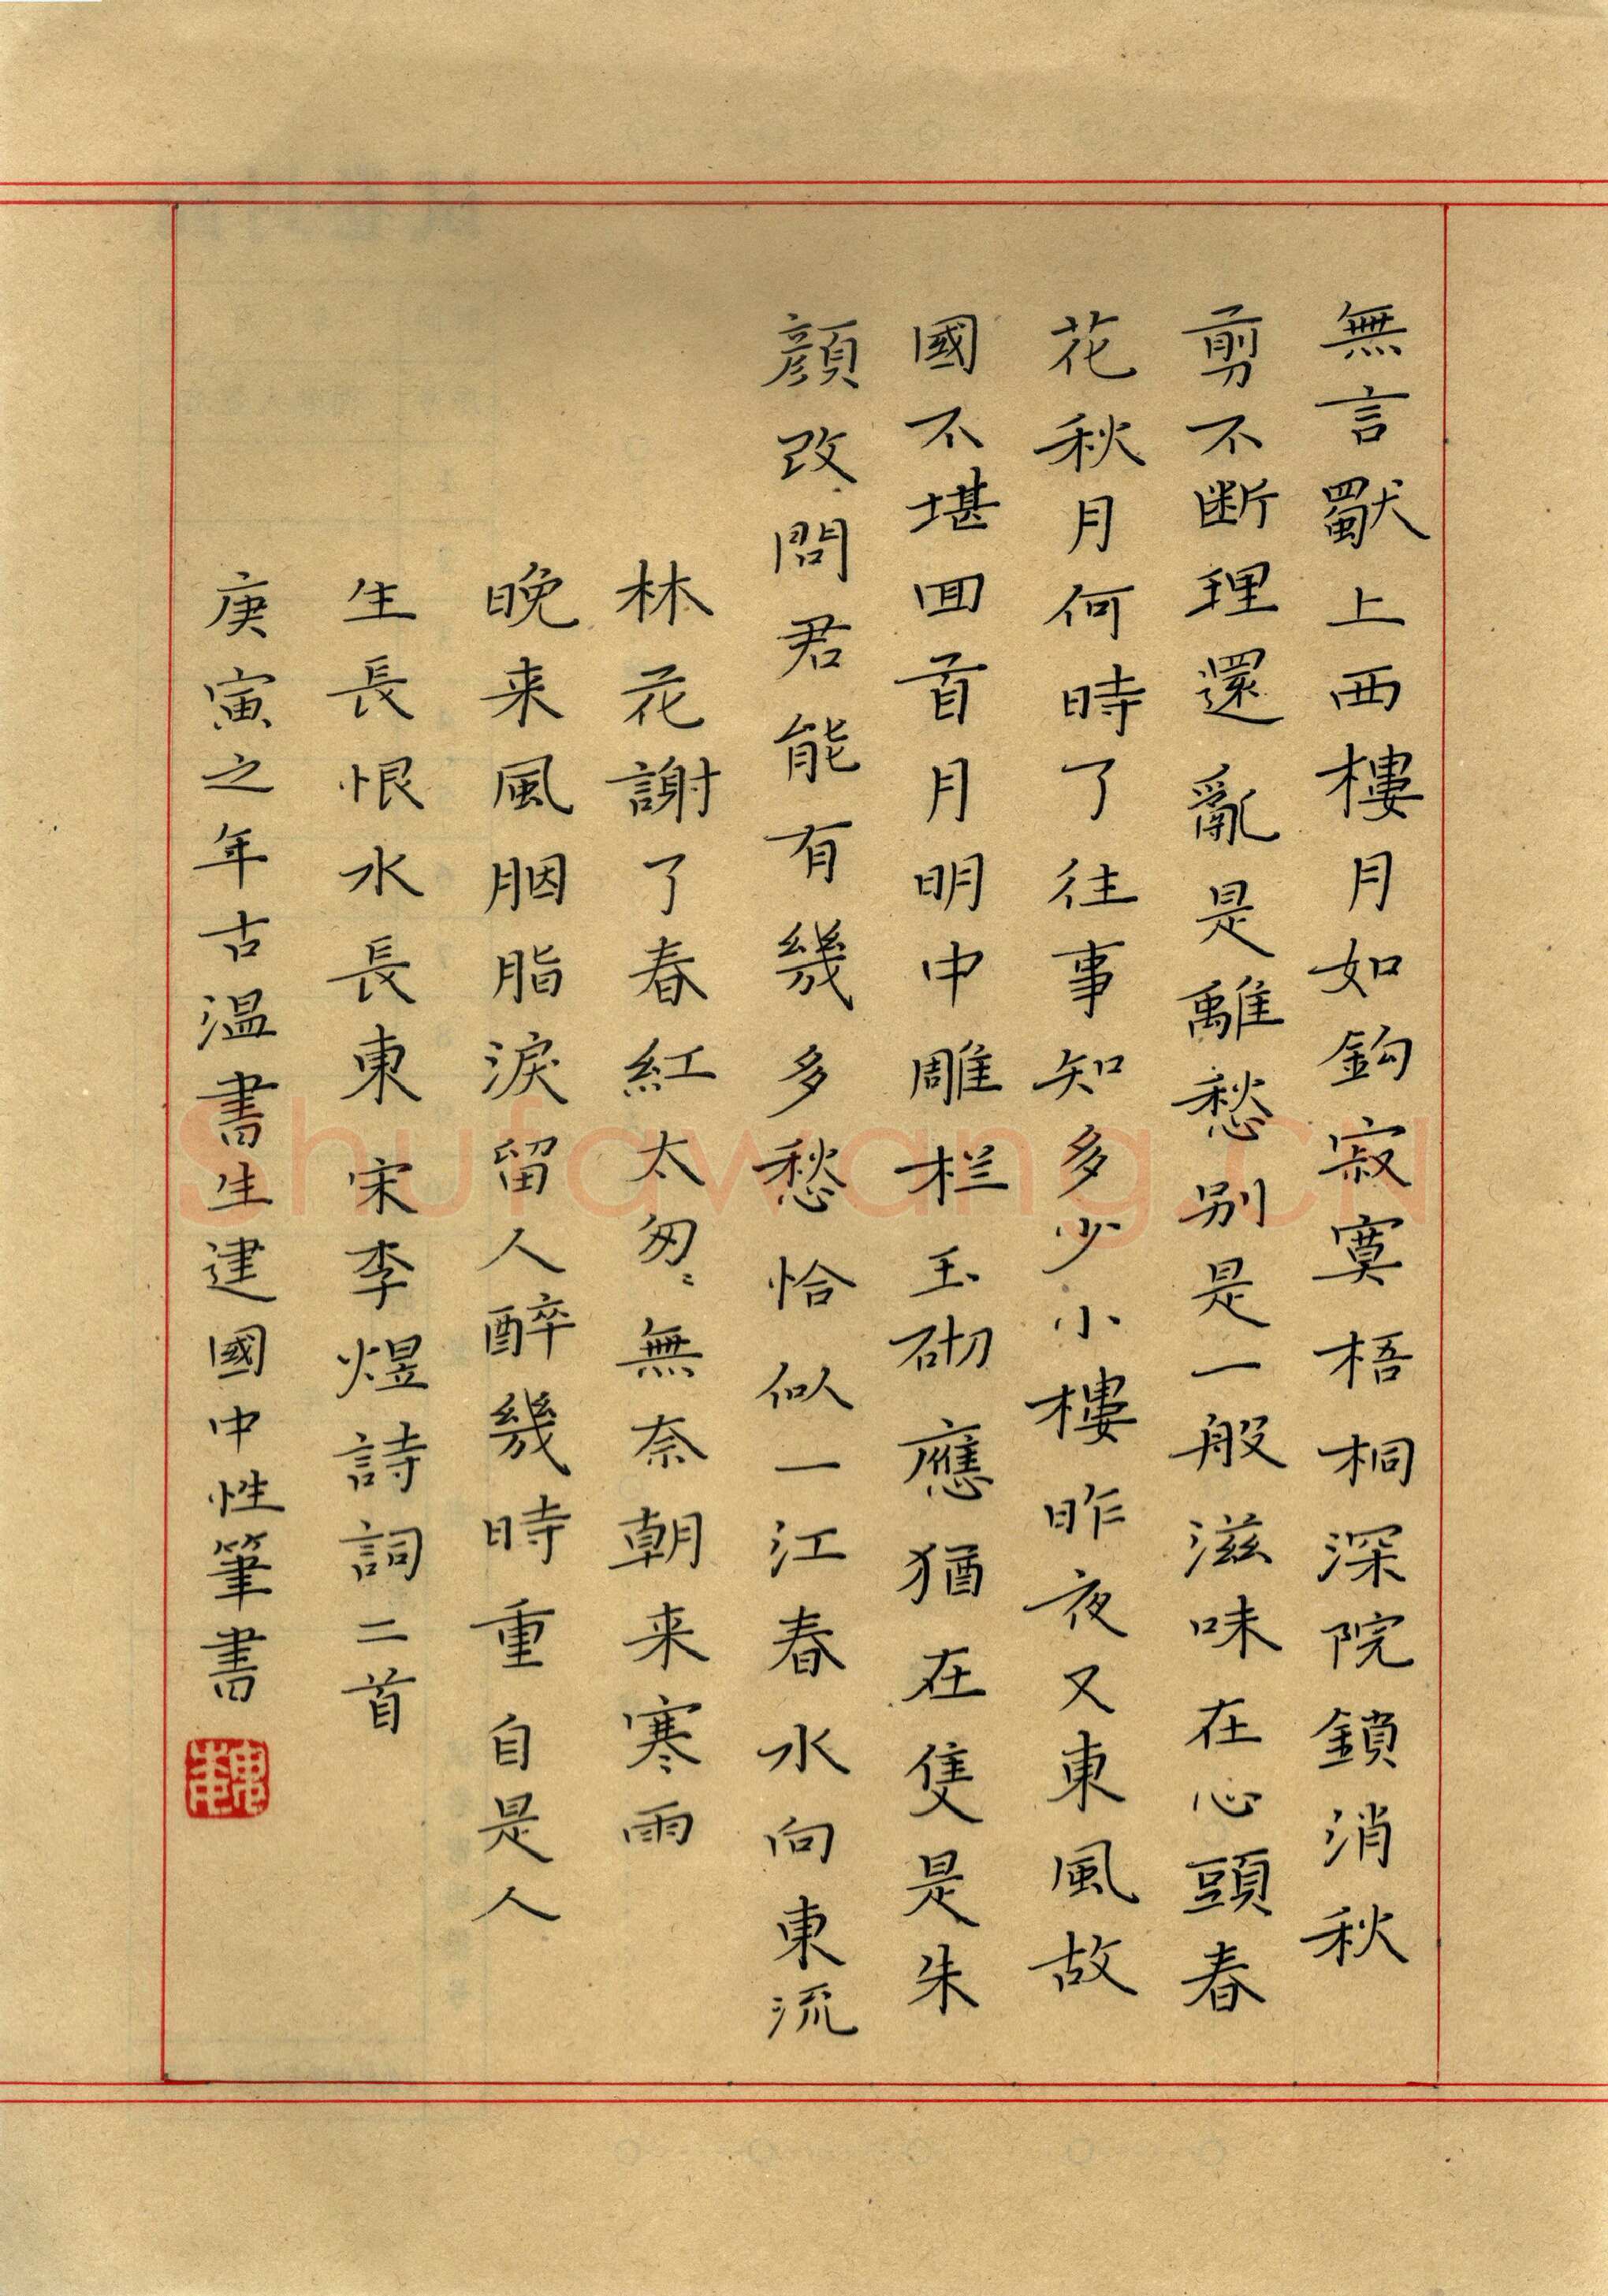 無言獨上西樓月如鈎寂寞梧桐深院鎖消秋
剪不断理還亂是離愁别是一般滋味在心頭春
花秋月何時了往事知多少小樓昨夜又東風故
國不堪回首月明中雕栏玉砌應猶在隻是朱
顔改問君能有幾多愁恰似一江春水向東流
林花謝了春紅太匆〻無奈朝来寒雨
晚来風胭脂淚留人醉幾時重自是人
生長恨水長東宋李煜詩詞二首
庚寅之年古温書生建國中性筆書
Shufawang.CN